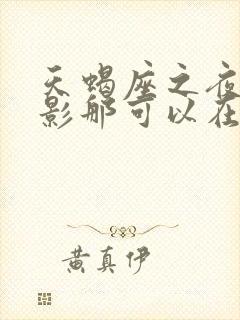 天蝎座之夜
影那可以在
黄真伊